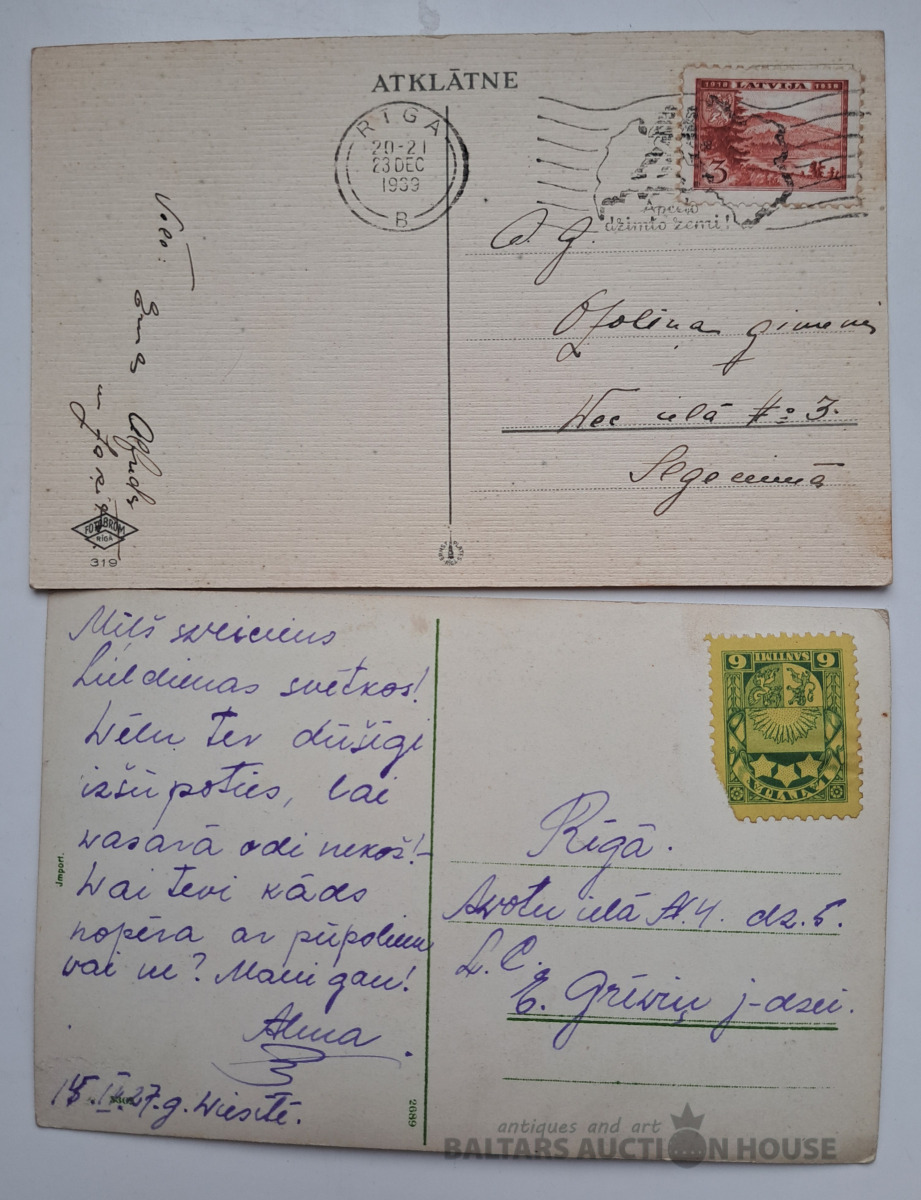 ATKLĀTNE
RIGA
20-21
23 DEC
1939
B
1918 LATVIJA 1938
3
Apceļo
dzimto zemi!
Ozoliņa ģimenei
Wec ielā № 3.
Siguldā
Vēlē:
Alfreds
un
FOTOBROM
RIGA
319
Mīļš sveiciens
Lieldienas svētkos!
Wēlu Tev dūšīgi
izšūpoties, lai
wasarā odi nekož!-
Wai Tevi kāds
nopēra ar pūpoliem
vai ne? Mani gan!
Alma
15. IV 27. g. Wiesītē.
Import.
2689
6 SANTIMI 6
LATVIJA
Rīgā.
Awotu ielā N. 4. dz. 5.
L. C.
E. Grīwiņ j-dzei.
antiques and art
BALTARS AUCTION HOUSE